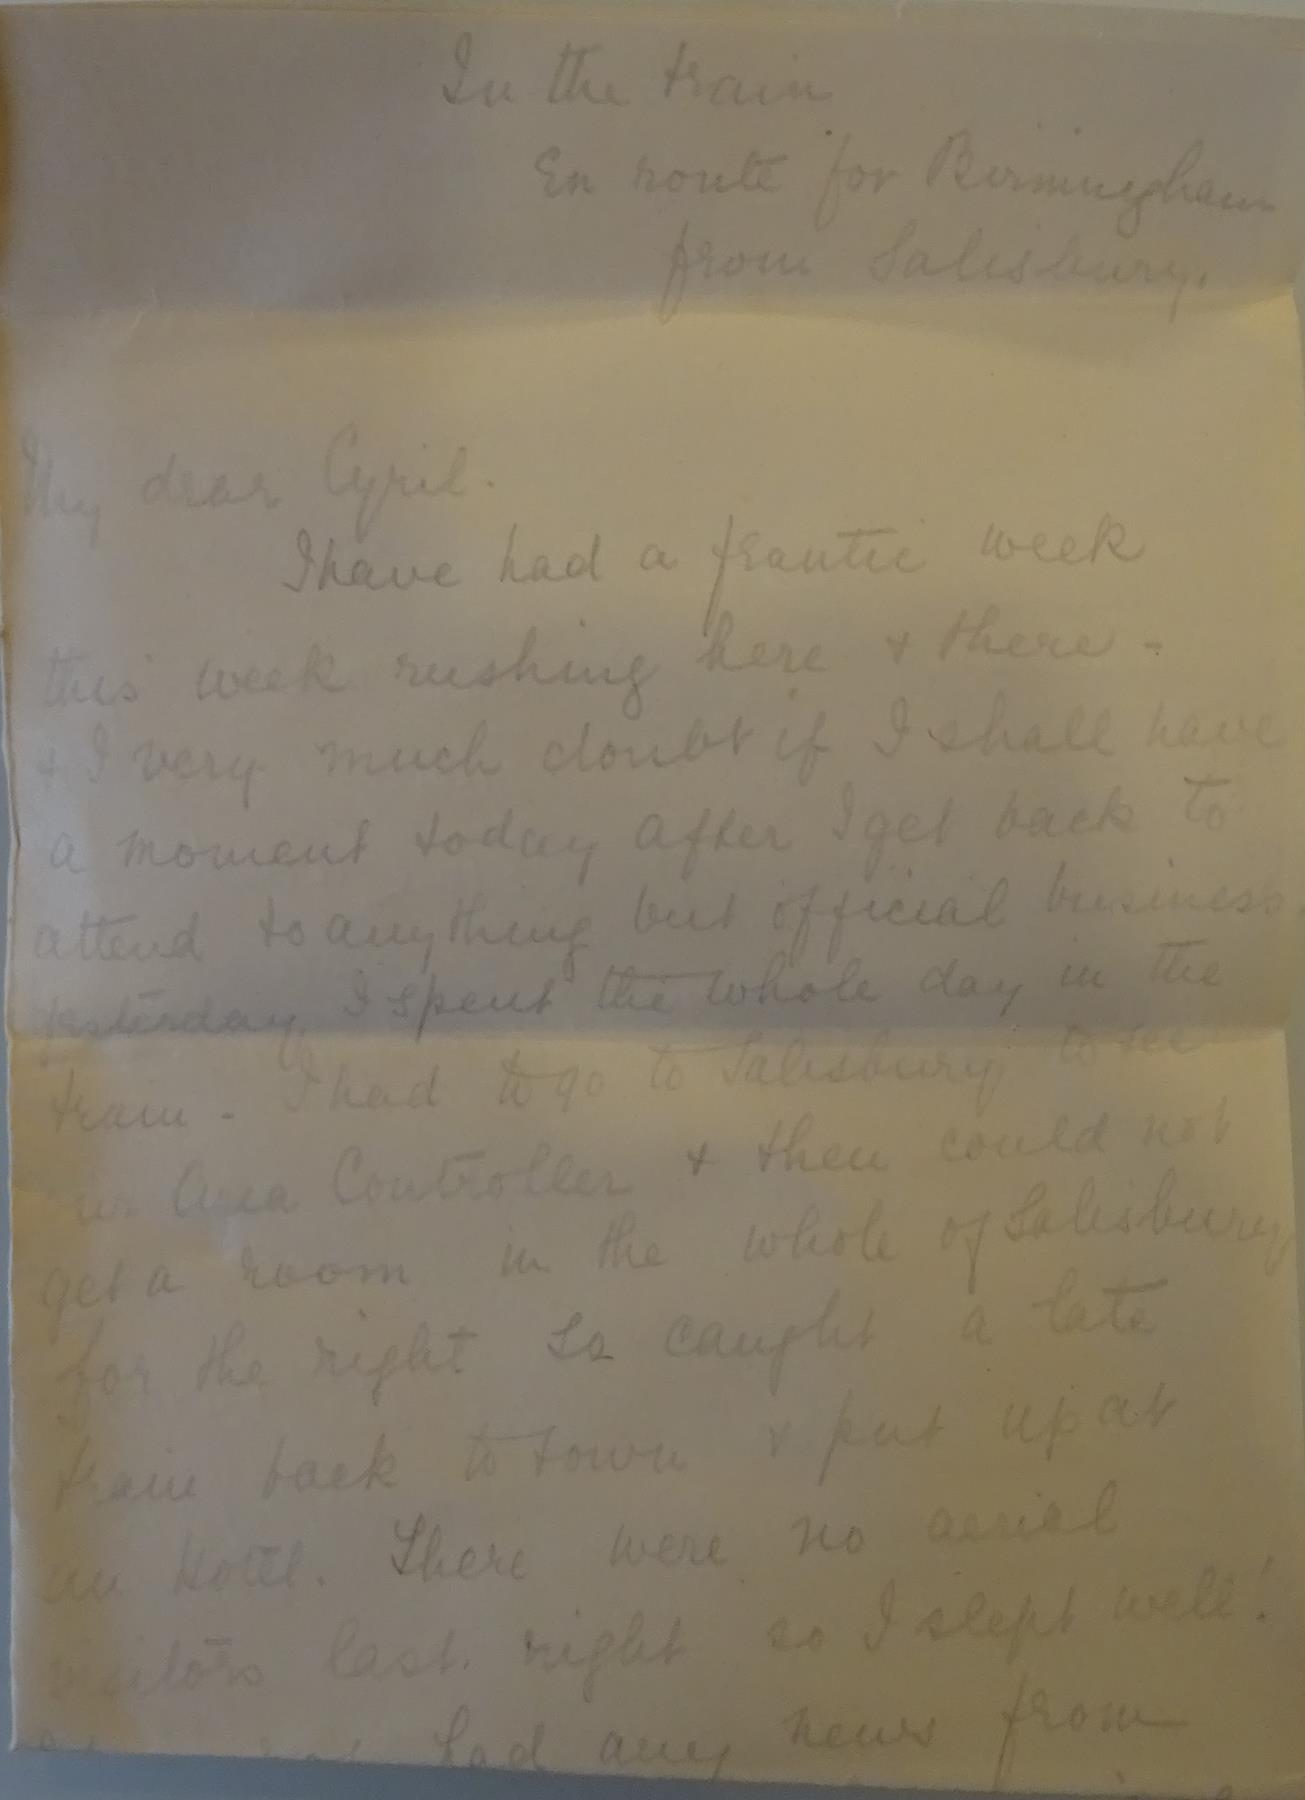 In the train
En route for Birmingham
from Salisbury.
My dear Cyril.
I have had a frantic week
this week rushing here & there -
& I very much doubt if I shall have
a moment today after I get back to
attend to anything but official business
Yesterday I spent the whole day in the
train - I had to go to Salisbury to see
Area Controller & then could not
get a room in the whole of Salisbury
for the night so caught a late
train back to town & put up at
an Hotel. There were no aerial
visitors last night so I slept well!
had any news from